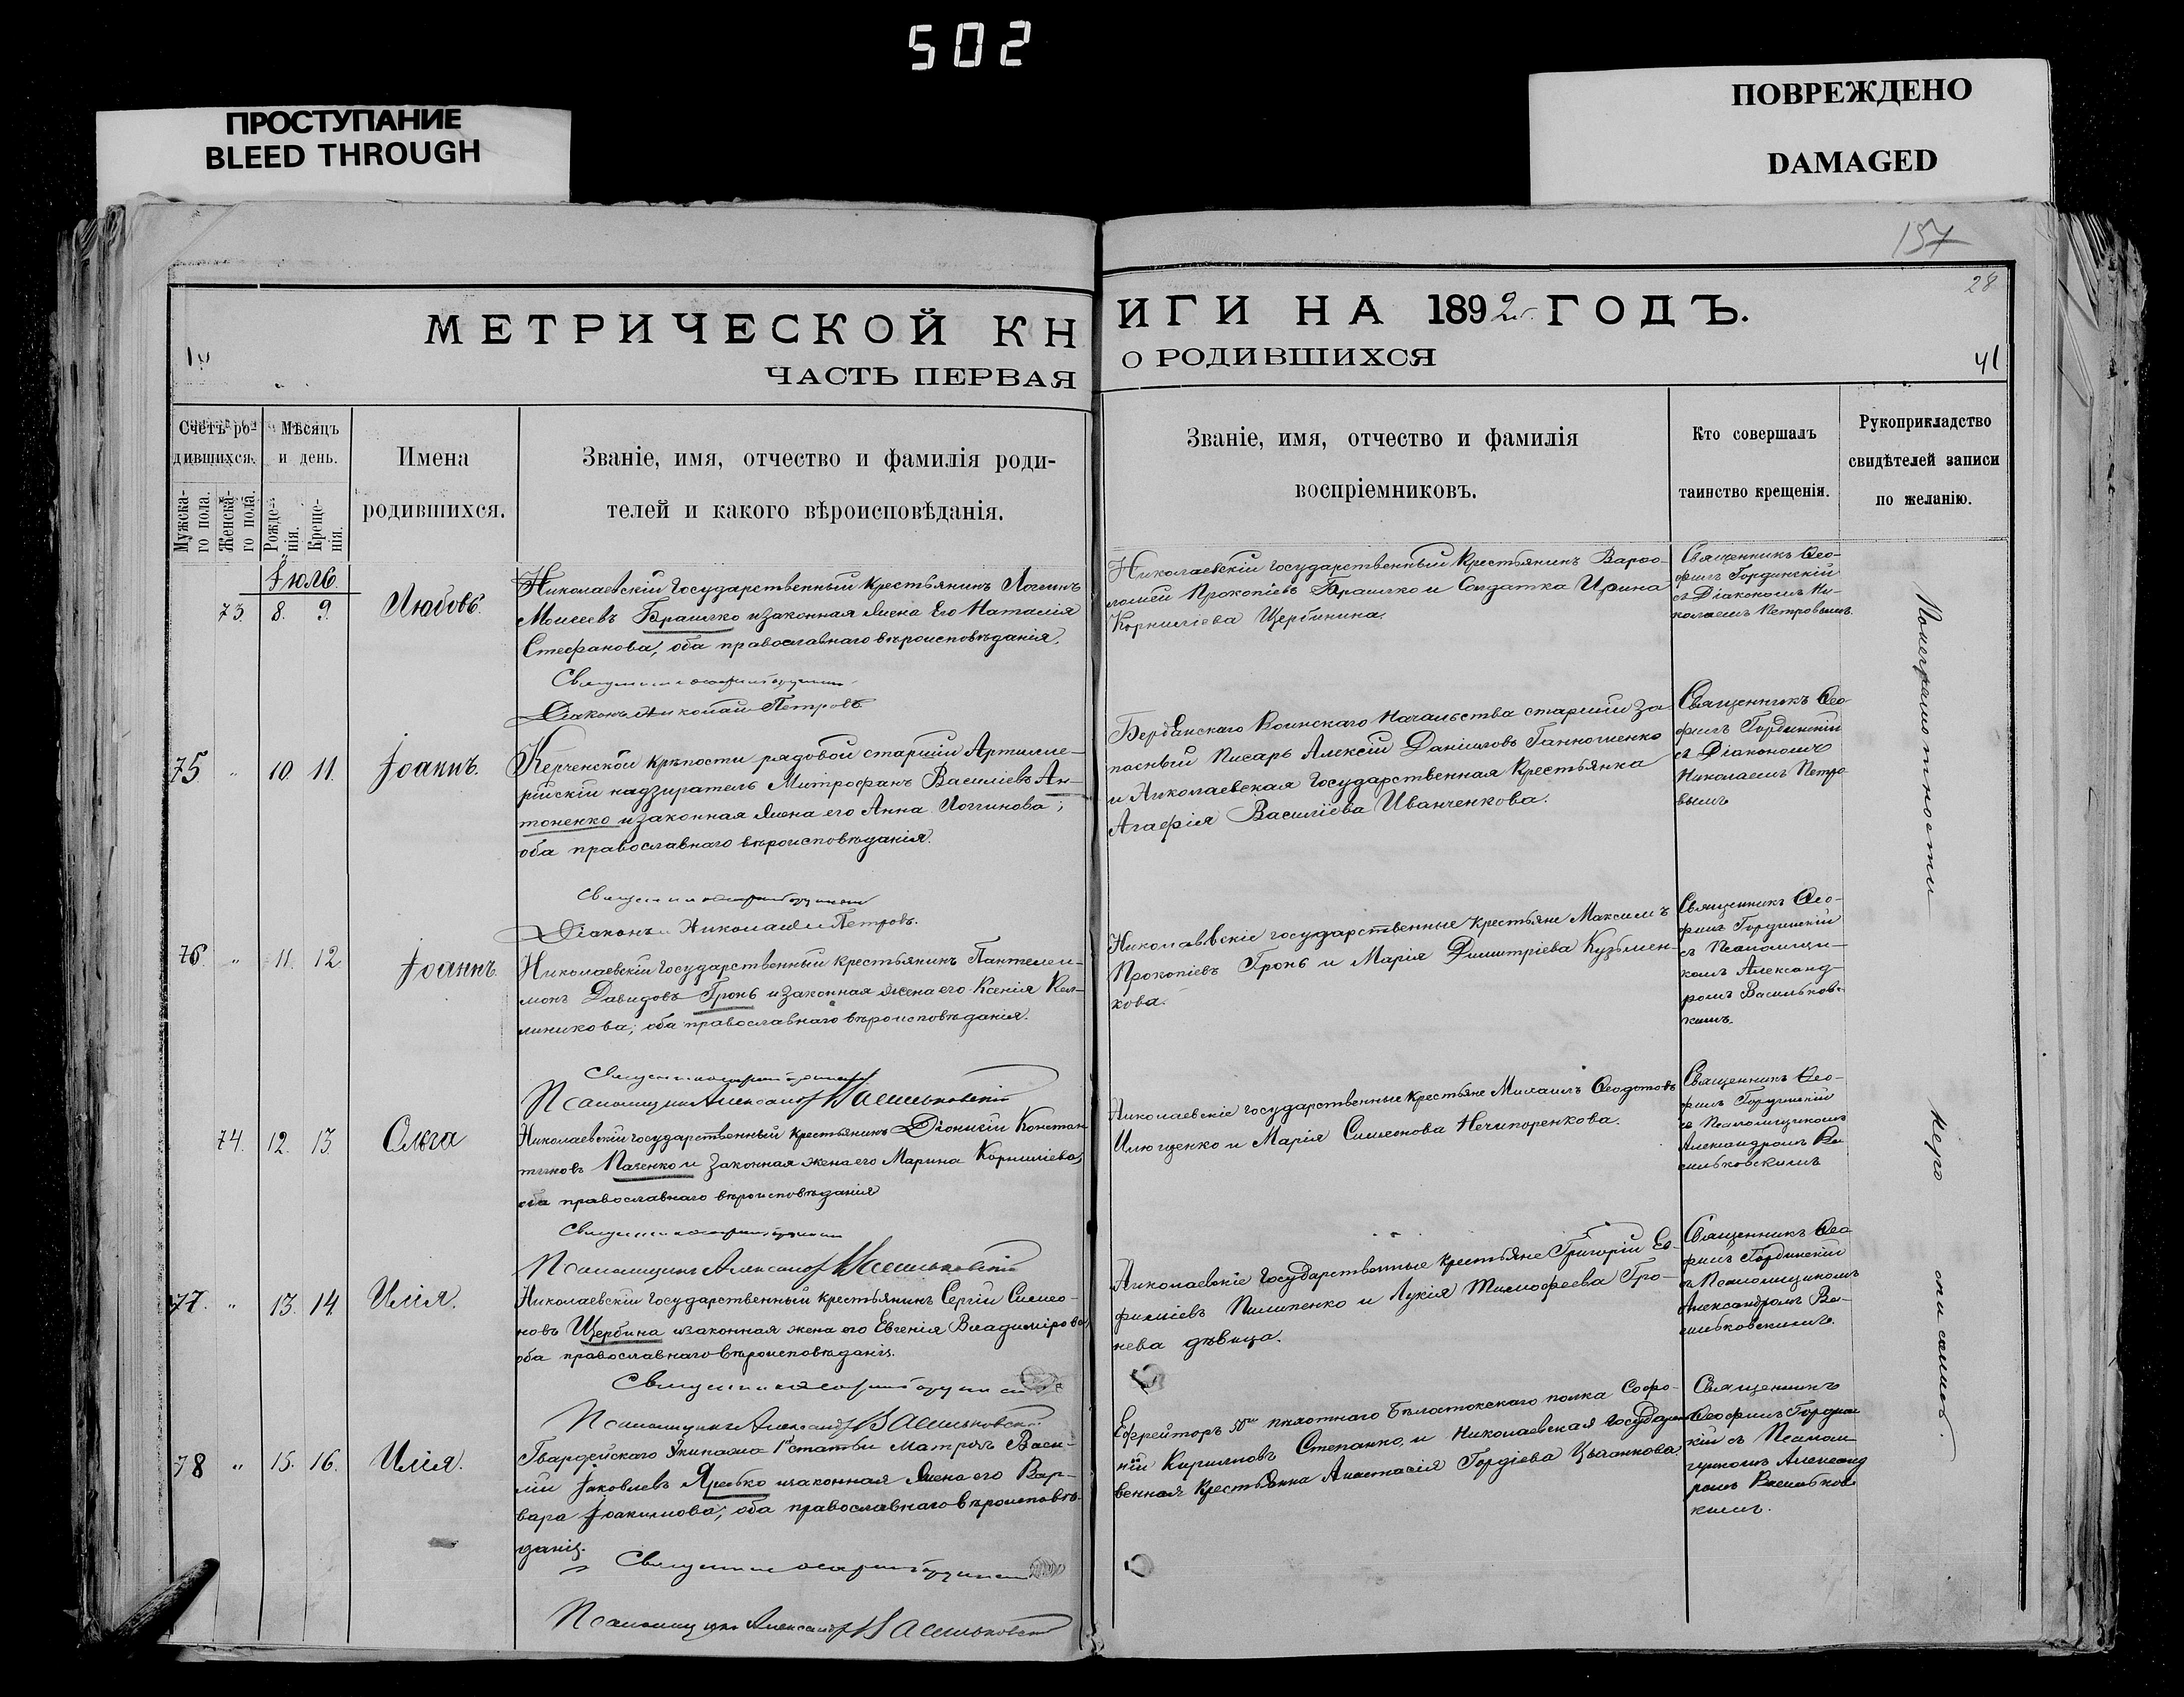 502
ПРОСТУПАНИЕ
BLEED THROUGH
ПОВРЕЖДЕНО
DAMAGED
157
28
МЕТРИЧЕСКОЙ КН
ИГИ НА 1892 ГОДЪ.
ЧАСТЬ ПЕРВАЯ
О РОДИВШИХСЯ
41
Счетъ ро-
дившихся.
Мужска-
го пола.
Женска-
го пола.
Мѣсяцъ
и день.
Рожде-
нія.
Креще-
нія.
Имена
родившихся.
Званіе, имя, отчество и фамилія роди-
телей и какого вѣроисповѣданія.
Званіе, имя, отчество и фамилія
воспріемниковъ.
Кто совершалъ
таинство крещенія.
Рукоприкладство
свидѣтелей записи
по желанію.
Іюль.
73. 8. 9. Любовь.
Николаевскій государственный крестьянинъ Логгинъ
Моисеевъ Брашко и законная жена его Наталія
Стефанова, оба православнаго вѣроисповѣданія.
Діаконъ Николай Петровъ
Николаевскій государственный крестьянинъ Варфо-
ломей Прокопіевъ Брашко и Солдатка Ирина
Корниліева Щербинина.
Священникъ Ѳео-
филъ Гординскій
съ Діакономъ Ни-
колаемъ Петровымъ.
75 " 10. 11. Іоаннъ.
Керченской крѣпости рядовой старшій Артилле-
рійскій надзиратель Митрофанъ Василіевъ Ан-
тоненко и законная жена его Анна Логгинова;
оба православнаго вѣроисповѣданія.
Діаконъ Николай Петровъ.
Бердянскаго Воинскаго Начальства старшій за-
пасный писарь Алексій Даніиловъ
и Николаевская государственная крестьянка
Агафія Василіева Иванченкова.
Священникъ Ѳео-
филъ Гординскій
съ Діакономъ
Николаемъ Петро-
вымъ
76. " 11. 12 Іоаннъ.
Николаевскій государственный крестьянинъ Пантелеи-
монъ Давидовъ Гронь и законная жена его Ксенія Кал-
линикова; оба православнаго вѣроисповѣданія.
Псаломщикъ Александръ Васильковскій
Николаевскіе государственные крестьяне Максимъ
Прокопіевъ Гронь и Марія Димитріева Кузьмен-
кова.
Священникъ Ѳео-
филъ Гординскій
съ Псаломщи-
комъ Александ-
ромъ Васильковс-
кимъ.
74. 12. 13. Ольга
Николаевскій государственный крестьянинъ Діонисій Констан-
тиновъ Паченко и законная жена его Марина Корниліева,
оба православнаго вѣроисповѣданія
Псаломщикъ Александръ Васильковскій
Николаевскіе государственные крестьяне Михаилъ Ѳеодотовъ
Илющенко и Марія Симеонова Нечипоренкова.
Священникъ Ѳео-
филъ Гординскій
съ Псаломщикомъ
Александромъ Ва-
сильковскимъ
77. " 13. 14. Илія.
Николаевскій государственный крестьянинъ Сергій Симео-
новъ Щербина и законная жена его Евгенія Владимірова,
оба православнаго вѣроисповѣданія.
Псаломщикъ Александръ Васильковскій
Николаевскіе государственные крестьяне Григорій Ев-
фиміевъ Пилипенко и Лукія Тимофеева Гро-
нева дѣвица.
Священникъ Ѳео-
филъ Гординскій
съ Псаломщикомъ
Александромъ Ва-
сильковскимъ.
78 " 15. 16. Илія.
Гвардейскаго Экипажа 1й статьи матросъ Васи-
лій Іаковлевъ и законная жена его Вар-
вара Іоакимова; оба православнаго вѣроисповѣ-
данія.
Псаломщикъ Александръ Васильковскій
Ефрейторъ пѣхотнаго Бѣлостокскаго полка Софро-
ній Кирилловъ Степанко, и Николаевская государст-
венная крестьянка Анастасія Гордіева Цыганкова.
Священникъ
Ѳеофилъ Гординс-
кій съ Псалом-
щикомъ Александ-
ромъ Васильковс-
кимъ.